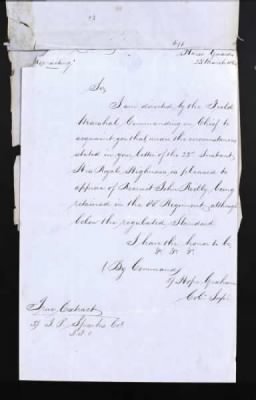 Horse Guards
Sir,
I am directed by the Field
Marshal Commanding in Chief to
acquaint you that under the circumstances
stated in your letter of the 23rd Instant,
His Royal Highness is pleased to
approve of Recruit John Reilly being
retained in the 88 Regiment, although
below the regulated Standard
I have the honor to be
&c &c &c
(By Command)
Hope Graham
Col. Supt.
True Extract
Col